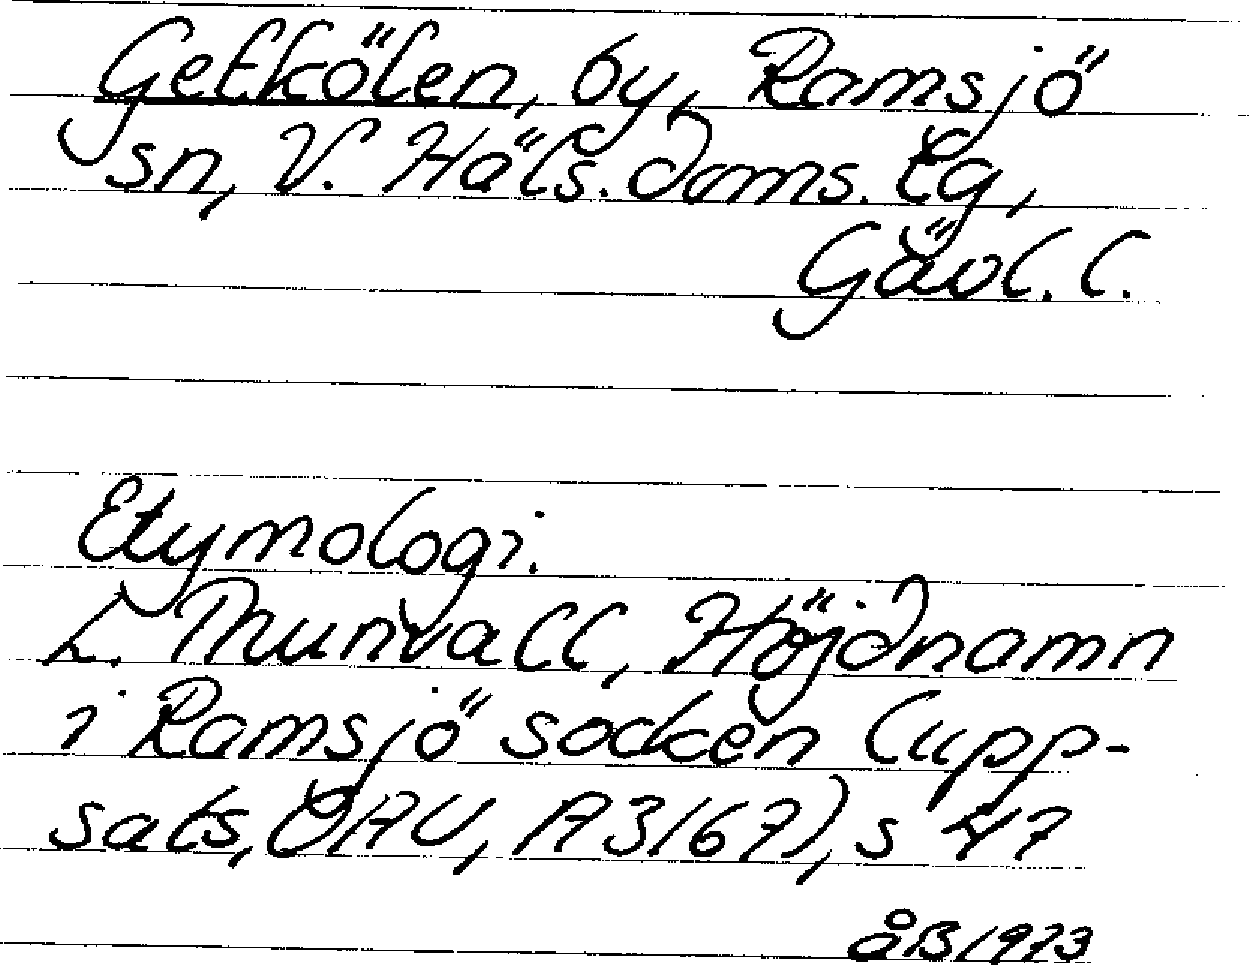 Getkölen, by, Ramsjö
sn, V. Häls. doms. lg,
Gävl. l.
Etymologi.
L. Thunvall, Höjdnamn
i Ramsjö socken (upp-
sats, OAU, A3167), s 47
åB 1973